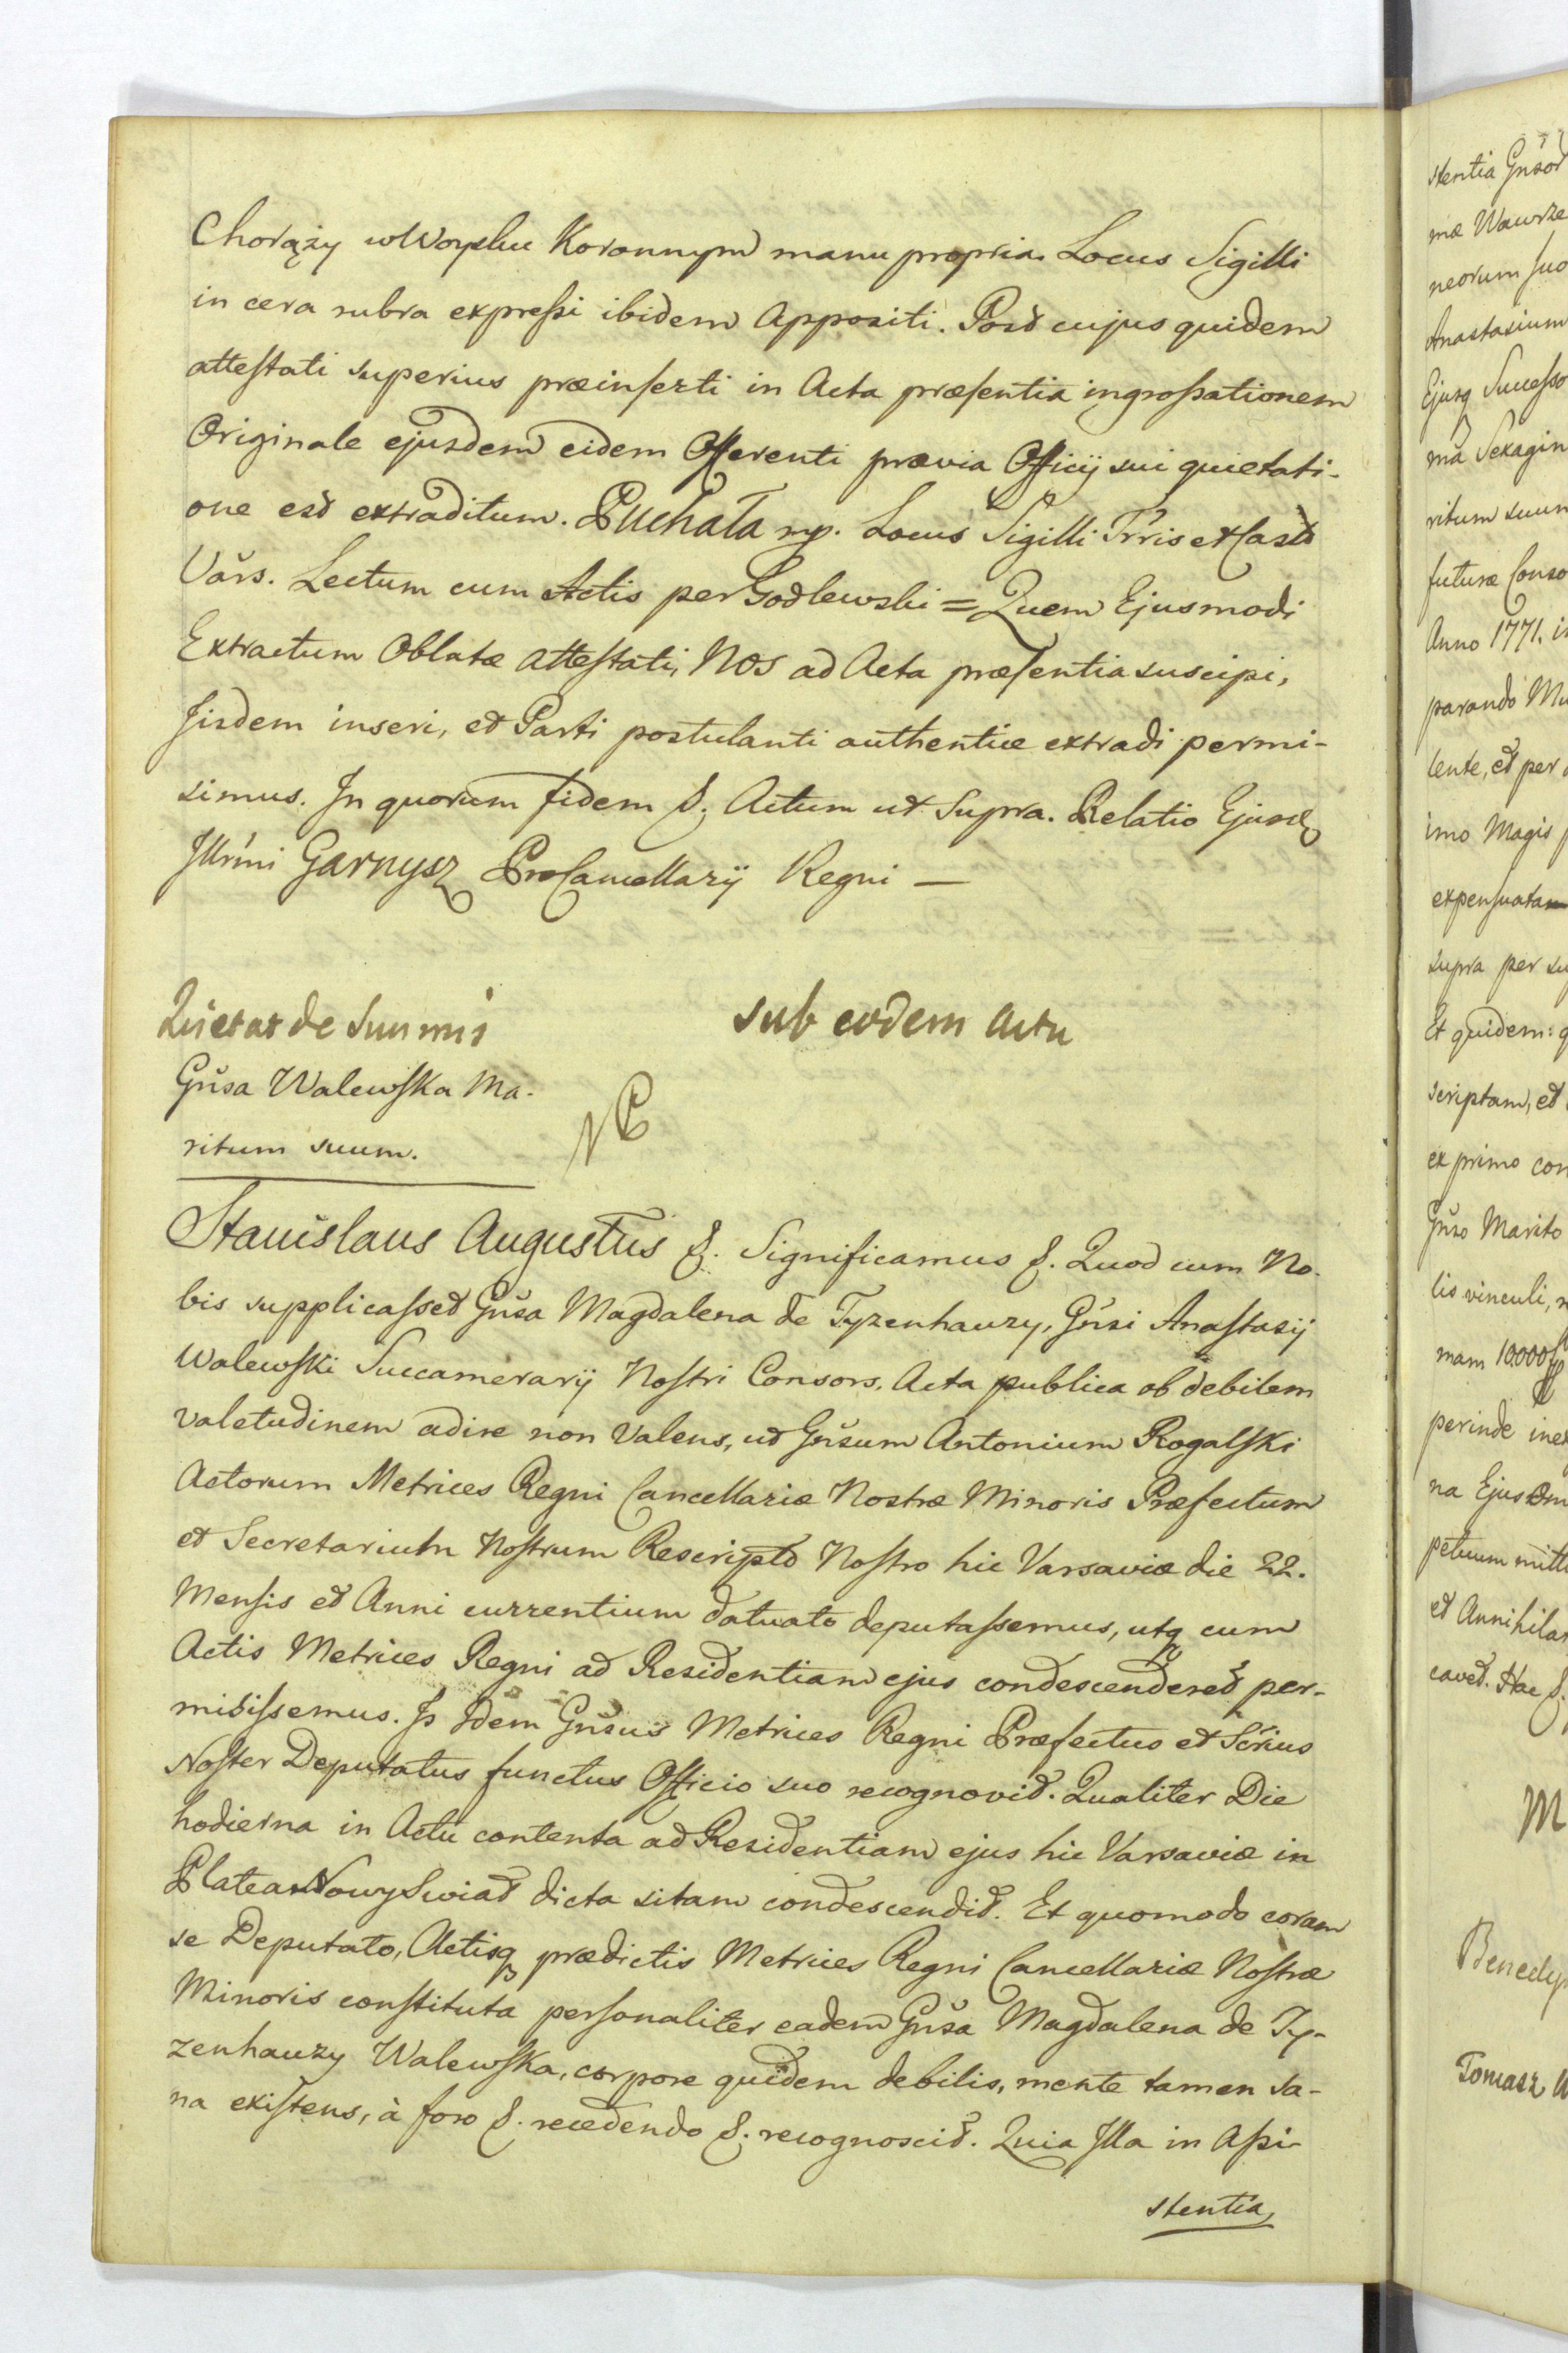 Chorąży w Woysku Koronnym manu propria. Locus Sigilli
in cera rubra expreſsi ibidem Appositi. Post cujus quidem
atteſtati superius præinſerti in Acta præſentia ingroſsationem
Originale ejusdem eidem Offerenti prævia Officij sui quietati-
one est extraditum. Puchała mp. Locus Sigilli Trris et Cast
Vars. Lectum cum Actis per Godlewski = Quem Ejusmodi
Extractum Oblatæ atteſtati, Nos ad Acta præſentia suscipi,
Jisdem inseri, et Parti postulanti authentice extradi permi-
simus. In quorum fidem &. Actum ut Supra. Relatio Ejusdq
Jllrmi Garnysz ProCancellarij Regni —
Quietat de Summis
sub eodem Actu
Gnsa Walewſka Ma-
ritum suum.
Stanislaus Augustus &. Significamus &. Quod cum No-
bis supplicaſset Gnsa Magdalena de Tyzenhauzy, Gnsi Anaſtasij
Walewſki Succamerarij Noſtri Consors, Acta publica ob debilem
valetudinem adire non valens, ut Gnsum Antonium Rogalſki
Actorum Metrices Regni Cancellariæ Nostræ Minoris Præfectum
et Secretarium Noſtrum Rescripto Noſtro hic Varsaviæ die 22.
Menſis et Anni currentium datuato deputaſsemus, utq cum
Actis Metrices Regni ad Residentiam ejus condescenderet per-
misiſsemus. Is Idem Gnsus Metrices Regni Præfectus et Scrius
Noſter Deputatus functus Officio suo recognovit. Qualiter Die
hodierna in Actu contenta ad Residentiam ejus hic Varsaviæ in
Platea Nowy Swiat dicta sitam condescendit. Et quomodo coram
se Deputato, Actisq prædictis Metrices Regni Cancellariæ Noſtræ
Minoris conſtituta perſonaliter eadem Gnsa Magdalena de Ty-
zenhauzy Walewſka, corpore quidem debilis, mente tamen sa-
na exiſtens, à foro &. recedendo &. recognoscit. Quia Jlla in Aſsi-
stentia
stentia Gnsor
mæ Wawrze
neorum suo
Anastasium
Ejusq Succeſso
ma Sexagin
ritum suum
futuræ Conso
Anno 1771. i
parando Mu
lente, et per
imo Magis
expenſuatam
supra per su
Et quidem: q
scriptam, et
ex primo con
Gnso Marito
lis vinculi,
mam 10000
perinde inex
na Ejus Om
petuum mitt
et Annihilat
cavet. Hac &.
M
Benedy
Tomasz W